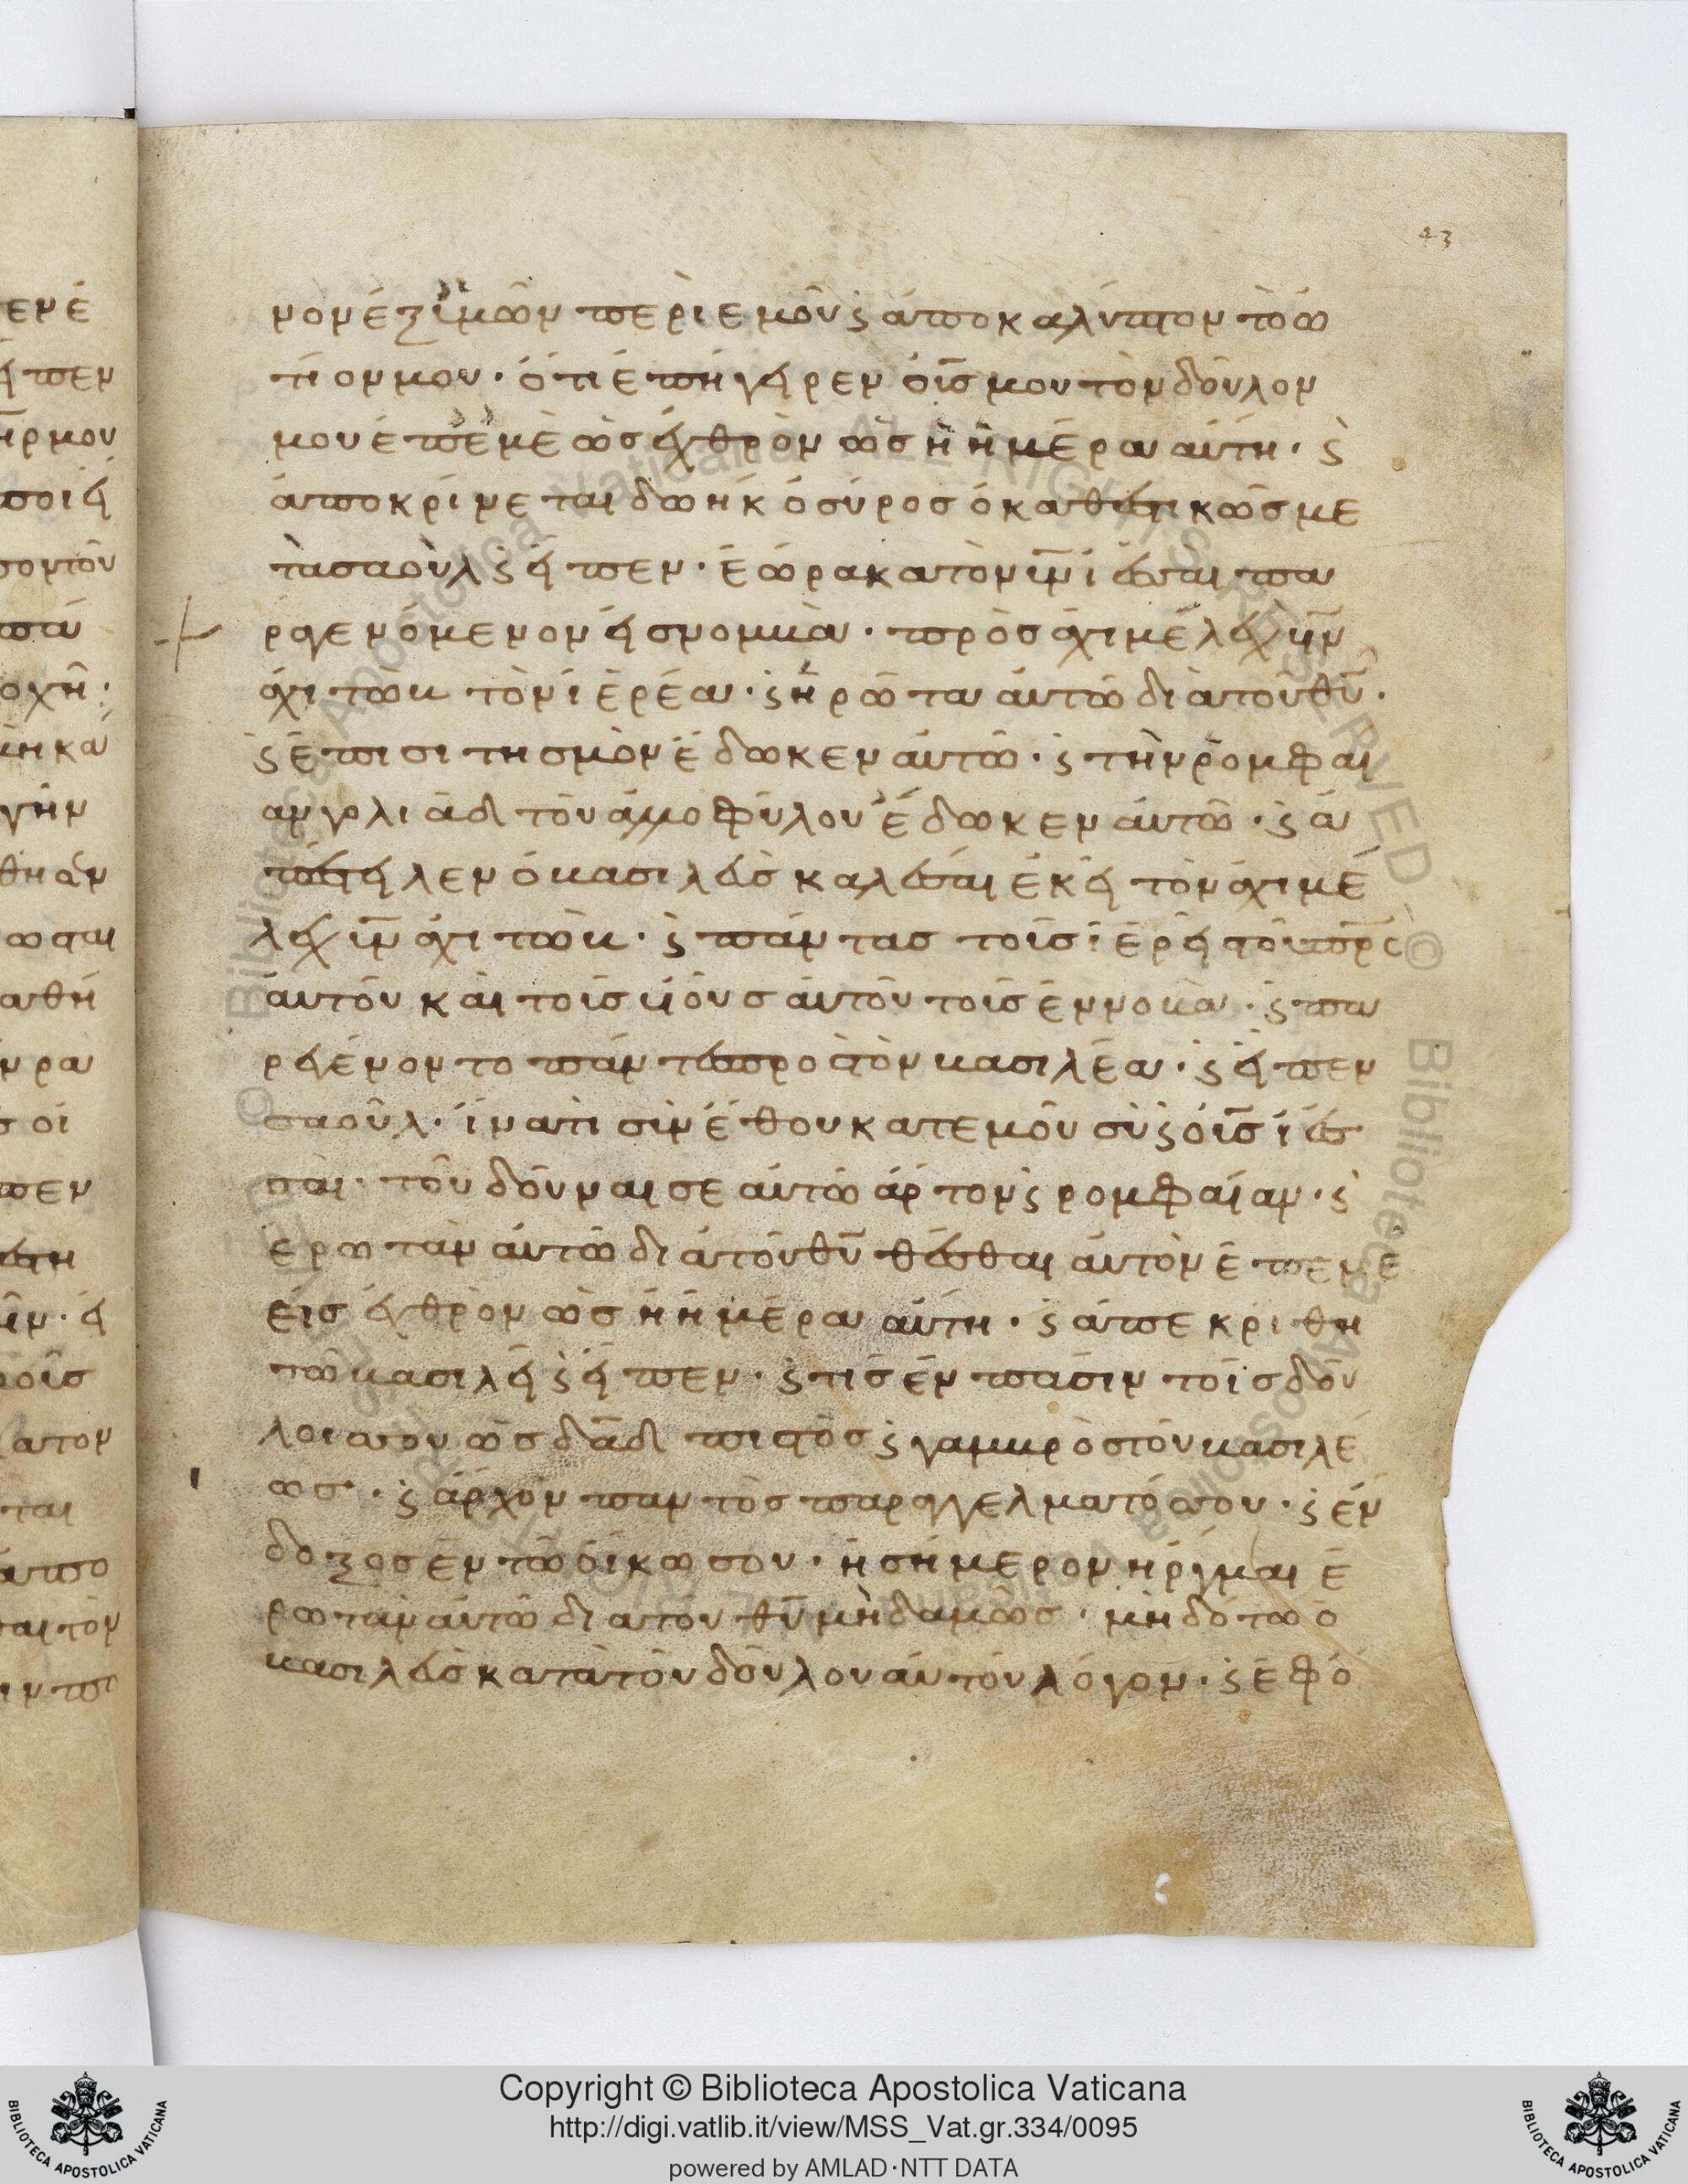 43
νον ἐξ ἱμῶν περὶ ἐμοῦ ϛ ἀποκαλύπτον τὸ ὠ
τίον μου · ὅτι ἐπήγειρεν ὁ ῡσ μου τὸν δοῦλον
μου ἐπ' ἐμὲ ὡσ ἐχθρὸν ὡσ ἡ ἡμέρα αὕτη · ϛ
ἀποκρίνεται δωὴκ ὁ σύροσ ὁ καθεστικῶσ με
τὰ σαοὺλ ϛ εἶπεν · ἑώρακα τὸν ῡν ἱεσσαὶ πα
ραγενόμενον εἰσ νομβὰ · πρὸσ ἀχιμέλεχ ῡν
ἀχιτὼβ τὸν ἱερέα · ϛ ἠρώτα αὐτῶ διὰ τοῦ θ̄ῡ ·
ϛ ἐπισιτησμὸν ἔδωκεν αὐτῶ · ϛ τὴν ρομφαί
αν γολιὰδ τοῦ ἀλλοφύλου ἔδωκεν αὐτῶ · ϛ ἀ
πέστειλεν ὁ βασιλεὺσ καλέσαι ἐκεῖ τὸν ἀχιμέ
λεχ ῡν ἀχιτὼβ · ϛ πάντασ τοῖσ ἱερεῖσ τοῦ π̄ρ̄σ
αὐτοῦ καὶ τοὶσ ὑοὺσ αὐτοῦ τοῖσ ἐν νοβὰ · ϛ πα
ρεγένοντο πάντεσ προσ τὸν βασιλέα · ϛ εἶπεν
σαοῦλ · ἵνατί σὶν ἔθου κατ' ἐμοῦ σὺ ϛ ὁ ῡσ ἱεσ
σαὶ · τοῦ δοῦναι σε αὐτῶ ἄρτον ϛ ρομφαίαν · ϛ
ερωτᾶν αὐτῶ διὰ τοῦ θ̄ῡ θέσθαι αὐτὸν ἐπ' ἐμὲ
εἰσ ἐχθρὸν ὡσ ἡ ἡμέρα αὕτη · ϛ ἀπεκρίθη
τῶ βασιλεῖ ϛ εἶπεν · ϛ τίσ ἐν πᾶσιν τοῖσ δού
λοισ σου ὡσ δ̄ᾱδ πιστὸσ ϛ γαμβρὸσ τοῦ βασιλέ
ωσ · ϛ ἄρχον παντὸσ παραγγέλματόσ σου · ϛ ἔν
δοξοσ ἐν τῶ οἴκω σου · ἢ σήμερον ἦργμαι ἐ
ρωτᾶν αὐτῶ διὰ τοῦ θ̄ῡ μηδαμῶσ · μὴ δότω ὁ
βασιλεὺσ κατὰ τοῦ δούλου αὐτοῦ λόγον · ϛ ἐφό
Copyright © Biblioteca Apostolica Vaticana
http://digi.vatlib.it/view/MSS_Vat.gr.334/0095
powered by AMLAD·NTT DATA
BIBLIOTECA APOSTOLICA VATICANA
BIBLIOTECA APOSTOLICA VATICANA